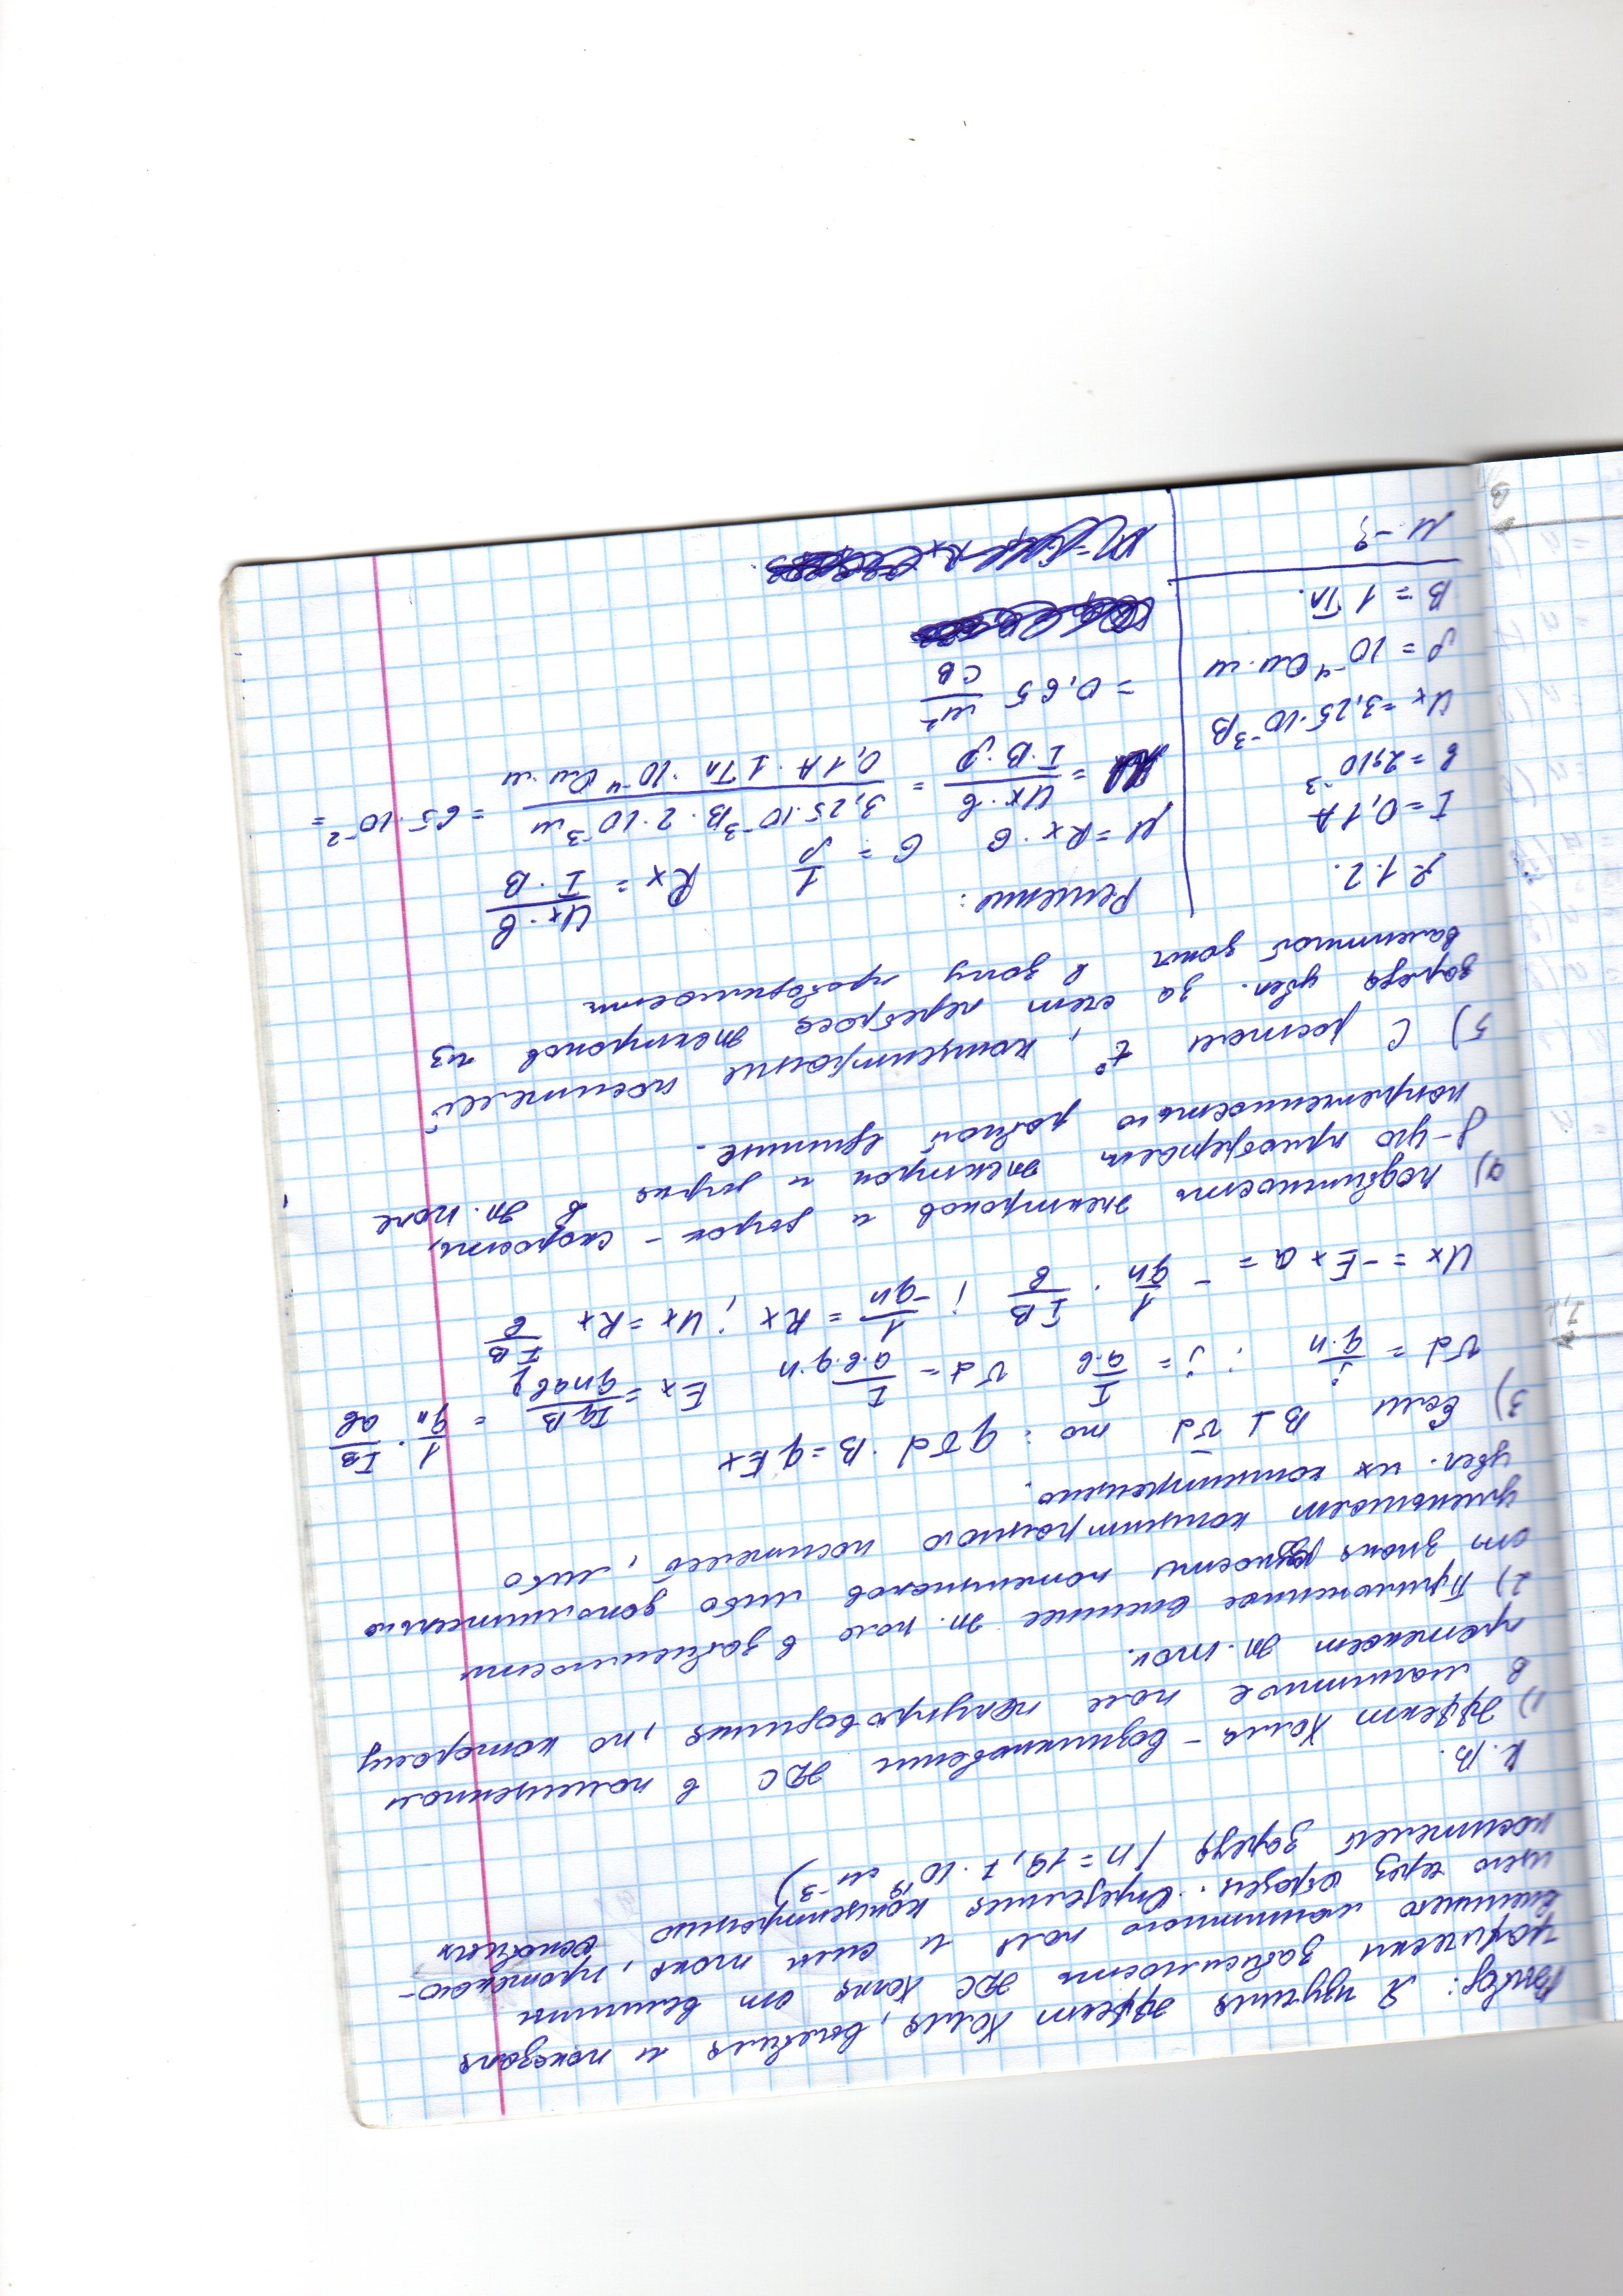 Вывод: Я изучила эффект Холла, выявила и показала
графически зависимость ЭДС Холла от величины
внешнего магнитного поля и силы тока, протекаю-
щего через образец. Определила концентрацию основных
носителей заряда (n = 19,7·10¹⁹ м⁻³)
К.В.
1) Эффект Холла – возникновение ЭДС в помещенном
в магнитное поле полупроводника, по которому
протекает эл. ток.
2) Приложенное внешнее эл. поле в зависимости
от знака разности потенциалов либо дополнительно
уменьшает концентрацию носителей, либо
увел. их концентрацию.
3) Если B ⊥ v̄d то: qvd · B = qEx
vd = j/(q·n) ; j = I/(a·в) vd = I/(a·в·q·n) Ex = IqB/(qnaвq) = 1/(qn) · IB/(aв)
Ux = -Ex a = - 1/(qn) · IB/в ; 1/(-qn) = Rx ; Ux = Rx IB/в
4) подвижность электронов и дырок – скорость,
к-ую приобретает электрон и дырка в эл. поле
напряженностью равной единице.
5) С ростом t°, концентрация носителей
заряда увел. за счет переброса электронов из
валентной зоны в зону проводимости
Решение:
I = 0,1 A
в = 2·10⁻³
Ux = 3,25·10⁻³ В
ρ = 10⁻⁴ Ом·м
B = 1 Тл.
μ - ?
μ = Rx · σ σ = 1/ρ Rx = Ux·в/(I·B)
= Ux·в/(I·B·ρ) = 3,25·10⁻³В·2·10⁻³м/(0,1А·1Тл·10⁻⁴Ом·м) = 65·10⁻² =
= 0,65 м²/св